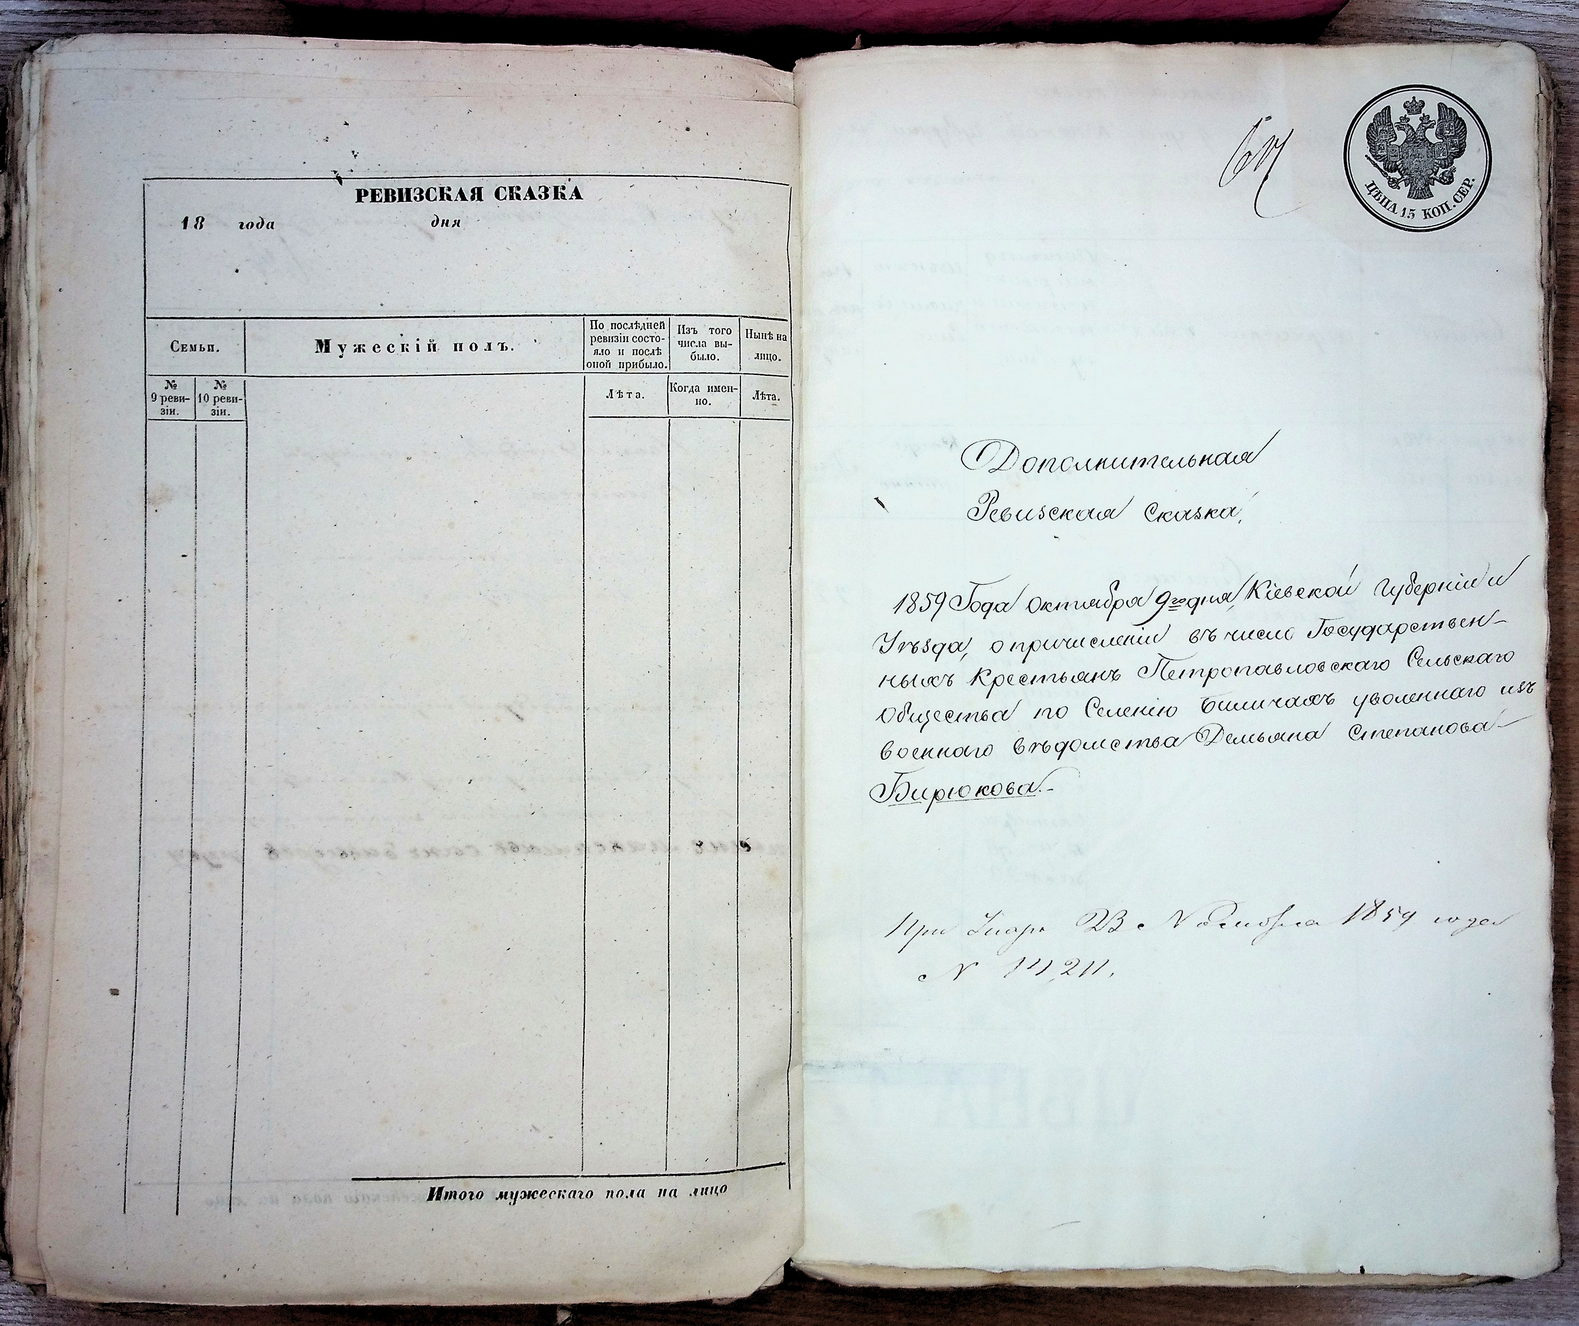 РЕВИЗСКАЯ СКАЗКА
18 года дня
Семьи.
№ 9 реви-
зіи.
№ 10 реви-
зіи.
Мужескій полъ.
По послѣдней
ревизіи состо-
яло и послѣ
оной прибыло.
Лѣта.
Изъ того
числа вы-
было.
Когда имен-
но.
Нынѣ на
лицо.
Лѣта.
Итого мужескаго пола на лицо
ЦѢНА 15 КОП. СЕР.
Дополнительная
Ревизская Сказка,
1859 Года Октября 9го дня, Кіевской Губерніи и
Уѣзда, о причисленіи въ число Государствен-
ныхъ Крестьянъ Петропавловскаго Сельскаго
Общества по Селенію Биличахъ уволеннаго изъ
военнаго вѣдомства Демьяна Степанова
Бирюкова.
При 1859 года
№